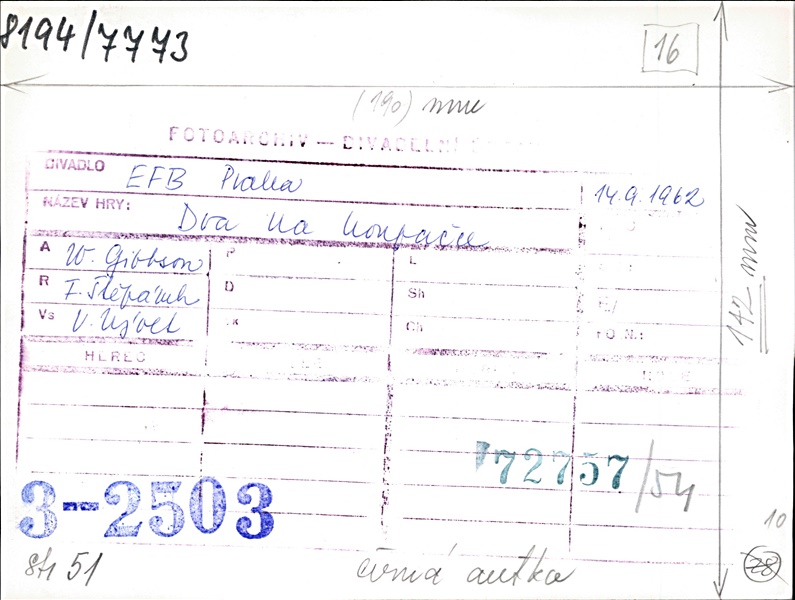 8194/7773
16
(190) mm
FOTOARCHIV — DIVADELNÍ
DIVADLO EFB Praha 14.9.1962
NÁZEV HRY: Dva na houpačce
A W. Gibbson P L
R F. Štěpánek D Sh
Vs V. Nývlt Ch FO N.:
HEREC
142 mm
72757/54
3-2503
10
28
str 51 černá antkva